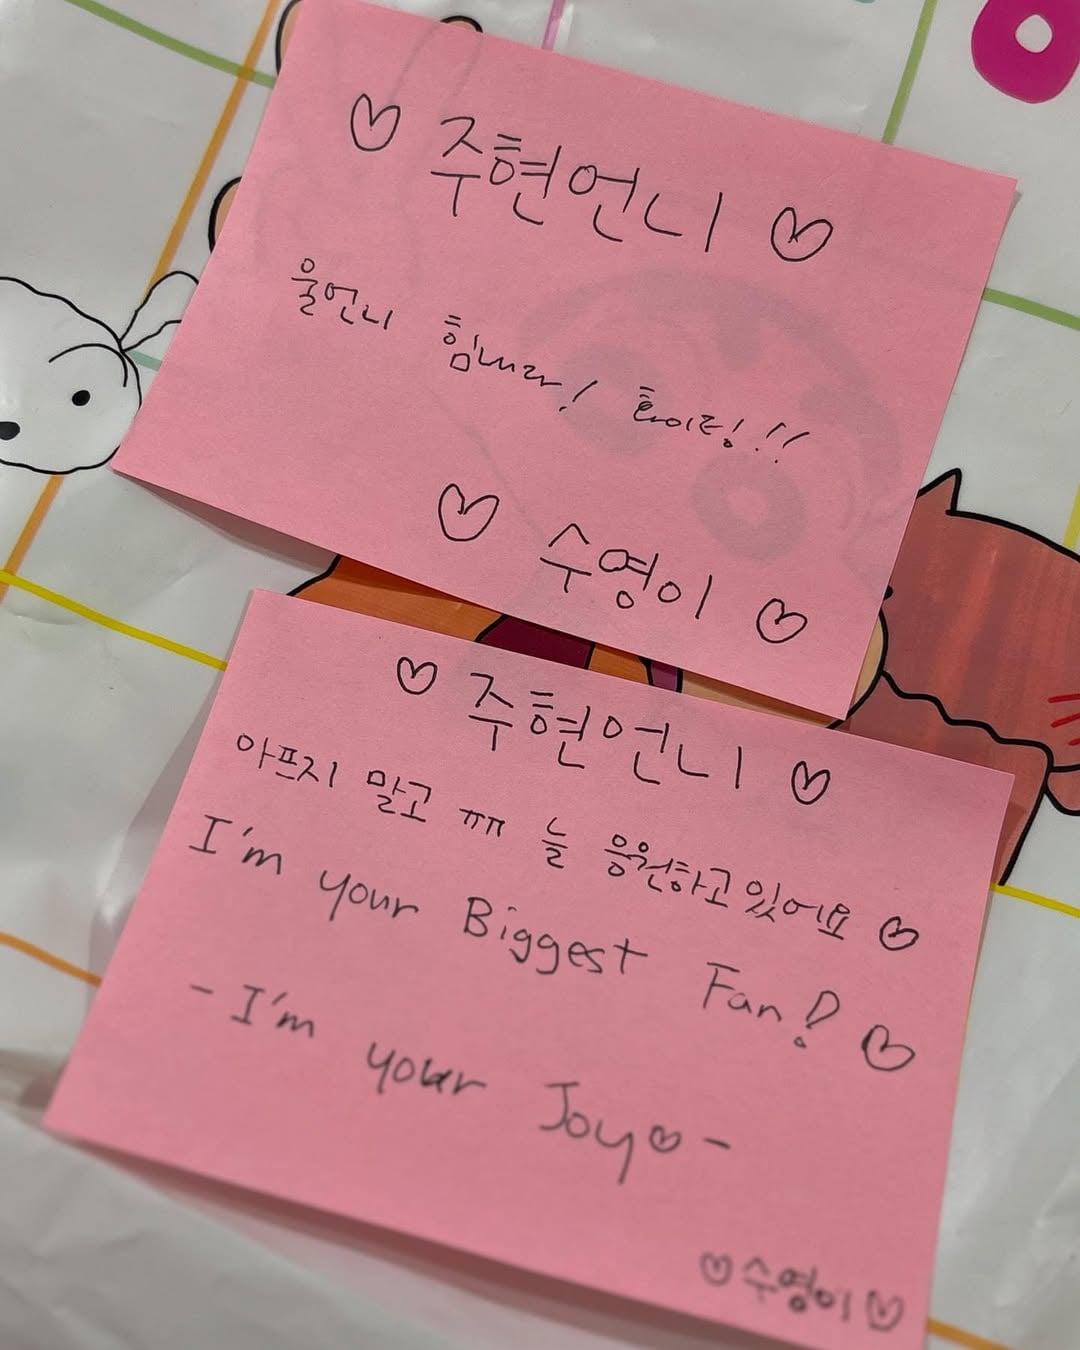 ♡ 주현언니 ♡
울언니 힘내라! 화이링!!!
♡ 수영이 ♡
♡ 주현언니 ♡
아프지 말고 ㅠㅠ 늘 응원하고있어요 ♡
I'm your Biggest Fan! ♡
- I'm your Joy♡ -
♡수영이♡